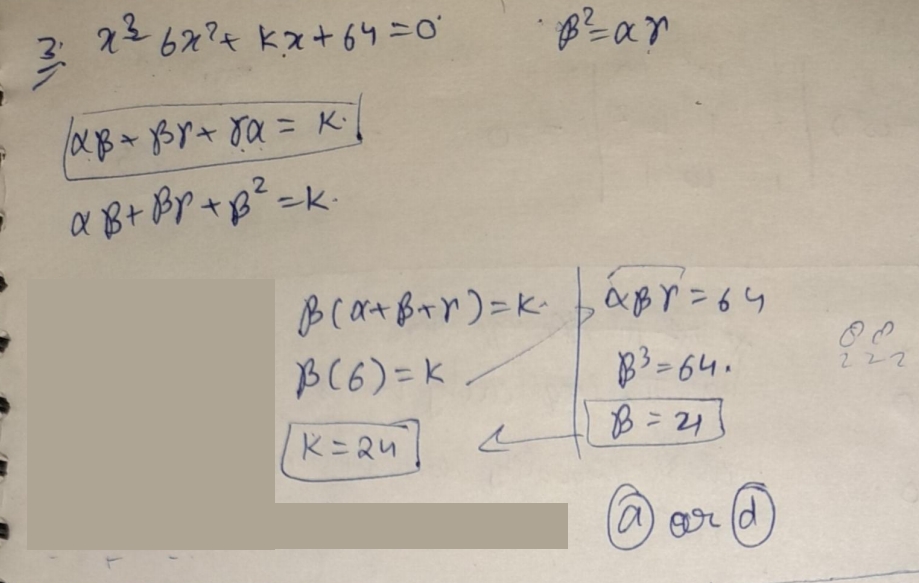 3. x³ 6x²+ Kx+64=0 β²=αγ
αβ+βγ+γα = K.
αβ+βγ+β²=K.
β(α+β+γ)=K.
β(6)=K
K=24
αβγ=64
β³=64.
β=4
(a) or (d)